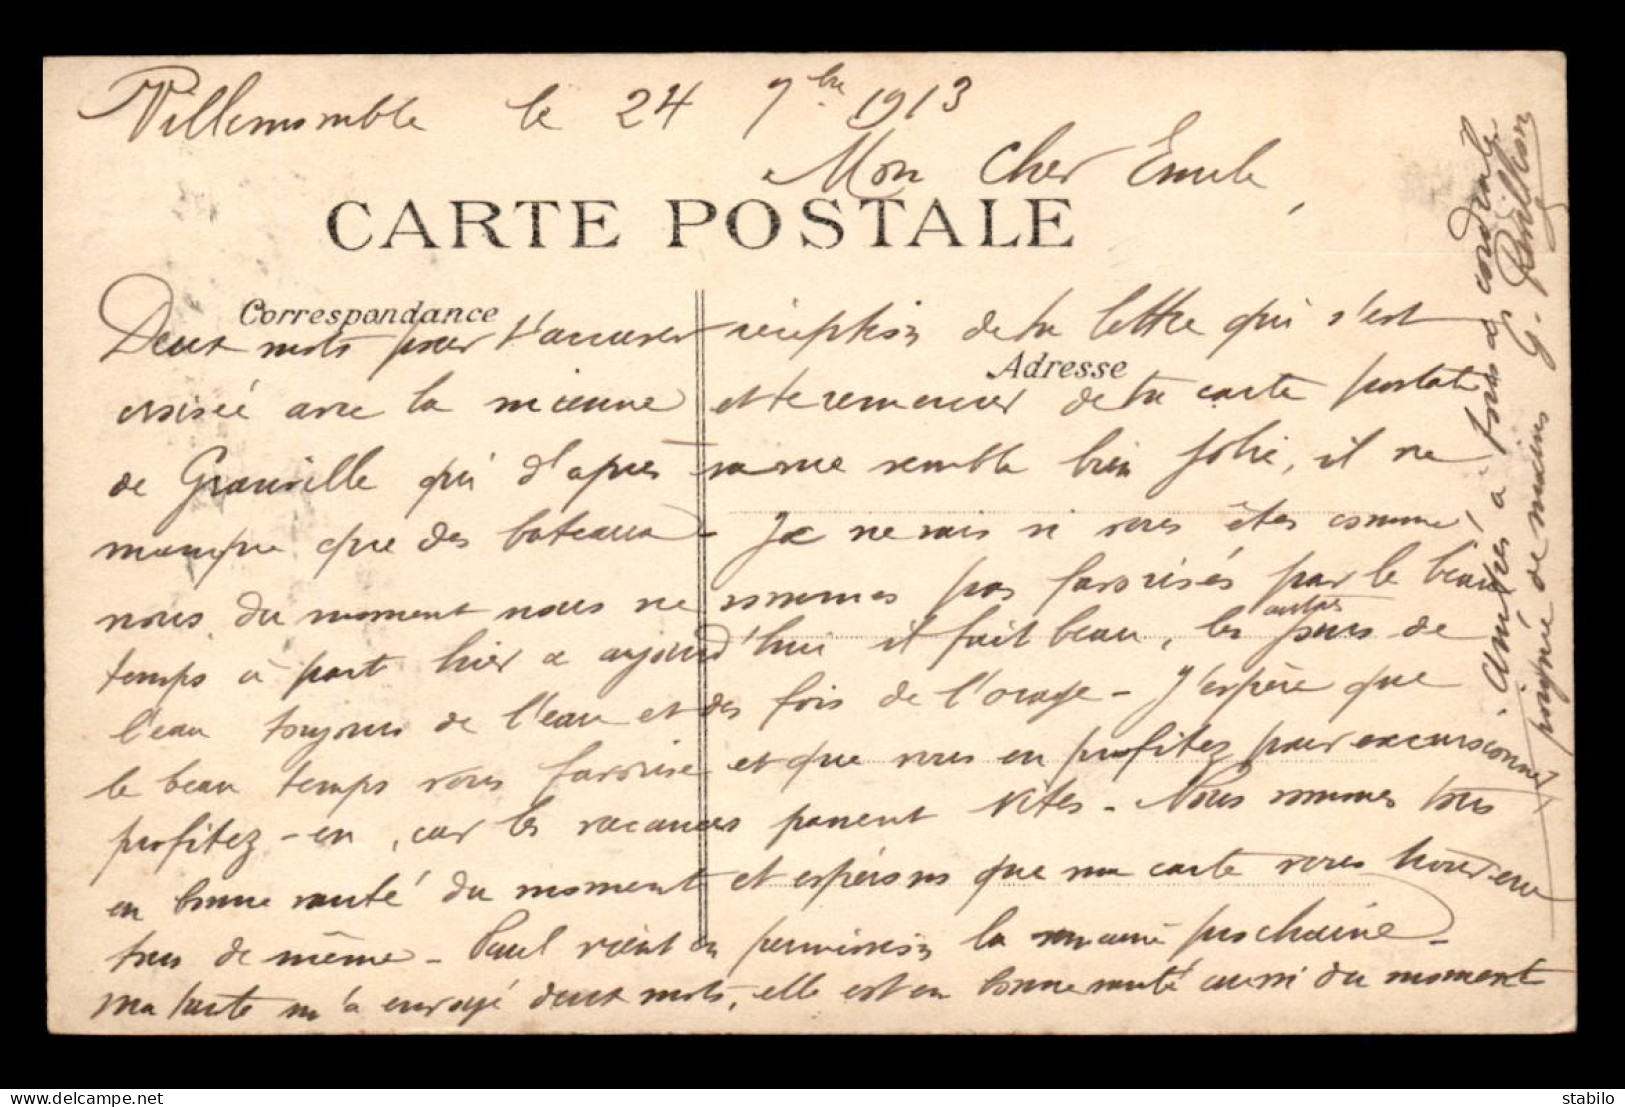 Villemomble le 24 7bre 1913
Mon Cher Emile,
CARTE POSTALE
Correspondance
Deux mots pour t'accuser réception de ta lettre qui s'est
Adresse
croisée avec la mienne et te remercier de ta carte postale
de Granville qui d'après sa vue semble bien jolie, il ne
manque que des bateaux - Je ne sais si vous êtes comme
nous du moment nous ne sommes pas favorisés par le beau
temps à part hier & aujourd'hui il fait beau, les autres jours de
l'eau toujours de l'eau et des fois de l'orage - J'espère que
le beau temps vous favorise et que vous en profitez pour excursionner
profitez-en, car les vacances passent vites - Nous sommes tous
en bonne santé du moment et espérons que ma carte vous trouvera
tous de même - Paul vient en permission la semaine prochaine -
Ma tante m'a envoyé deux mots, elle est en bonne santé aussi du moment
Amitiés à tous & cordiale
poignée de mains G.